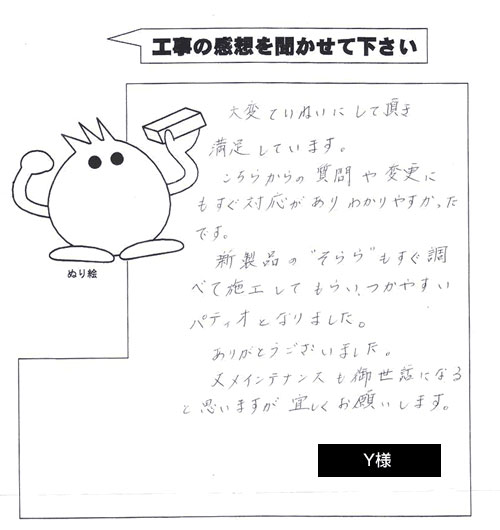 工事の感想を聞かせて下さい
大変ていねいにして頂き
満足しています。
こちらからの質問や変更に
もすぐ対応がありわかりやすかった
です。
新製品の"そらら"もすぐ調
べて施工してもらい、つかやすい
パティオとなりました。
ありがとうございました。
又メインテナンスも御世話になる
と思いますが宜しくお願いします。
ぬり絵
Y様